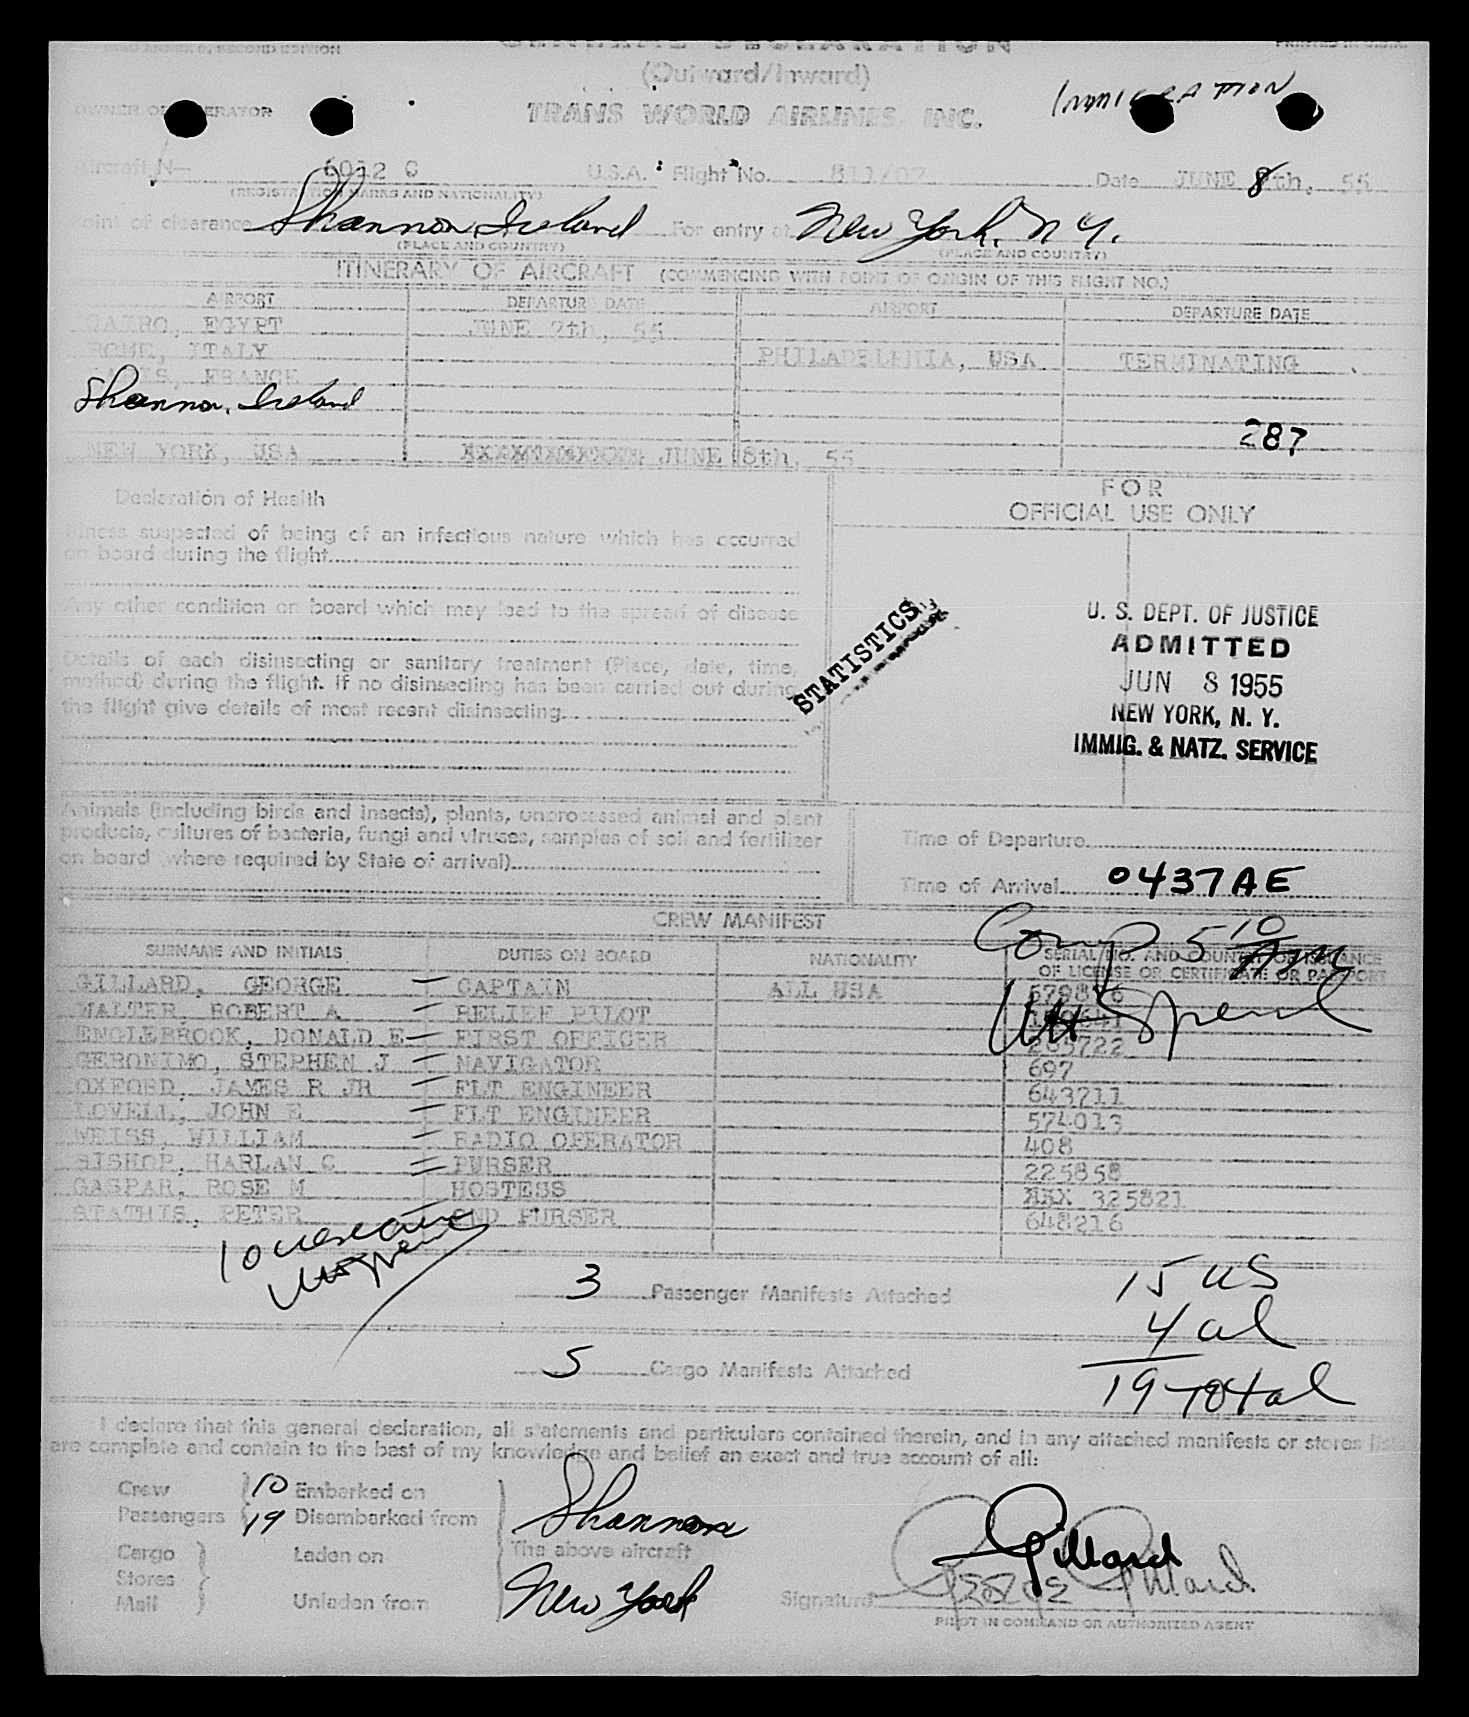 GENERAL DECLARATION
(Outward/Inward)
OWNER OR OPERATOR
TRANS WORLD AIRLINES, INC.
Aircraft N— 6012 C U.S.A. Flight No. 811/07 Date JUNE 8th, 55
(REGISTRATION MARKS AND NATIONALITY)
Point of clearance Shannon, Ireland For entry at New York, N Y.
(PLACE AND COUNTRY) (PLACE AND COUNTRY)
ITINERARY OF AIRCRAFT (COMMENCING WITH POINT OF ORIGIN OF THIS FLIGHT NO.)
AIRPORT DEPARTURE DATE AIRPORT DEPARTURE DATE
CAIRO, EGYPT JUNE 7th, 55
ROME, ITALY PHILADELPHIA, USA TERMINATING
PARIS, FRANCE
Shannon, Ireland
287
NEW YORK, USA JUNE 8th, 55
Declaration of Health
FOR
OFFICIAL USE ONLY
Illness suspected of being of an infectious nature which has occurred
on board during the flight
Any other condition on board which may lead to the spread of disease
Details of each disinsecting or sanitary treatment (Place, date, time,
method) during the flight. If no disinsecting has been carried out during
the flight give details of most recent disinsecting
STATISTICS
U. S. DEPT. OF JUSTICE
ADMITTED
JUN 8 1955
NEW YORK, N. Y.
IMMIG. & NATZ. SERVICE
Animals (including birds and insects), plants, unprocessed animal and plant
products, cultures of bacteria, fungi and viruses, samples of soil and fertilizer
on board (where required by State of arrival)
Time of Departure
Time of Arrival 0437AE
Comp 5 10
CREW MANIFEST
SURNAME AND INITIALS DUTIES ON BOARD NATIONALITY SERIAL NO. AND COUNTRY OF ISSUANCE
OF LICENSE OR CERTIFICATE OR PASSPORT
GILLARD, GEORGE CAPTAIN ALL USA
WALTER, ROBERT A RELIEF PILOT
ENGLEBROOK, DONALD E FIRST OFFICER 285722
GERONIMO, STEPHEN J NAVIGATOR 697
OXFORD, JAMES R JR FLT ENGINEER 643711
LOVELL, JOHN E FLT ENGINEER 574013
WEISS, WILLIAM RADIO OPERATOR 408
BISHOP, HARLAN C PURSER 225858
GASPAR, ROSE M HOSTESS 325821
STATHIS, PETER 2ND PURSER 648216
3 Passenger Manifests Attached
15 US
4 al
5 Cargo Manifests Attached
19 Total
I declare that this general declaration, all statements and particulars contained therein, and in any attached manifests or stores list
are complete and contain to the best of my knowledge and belief an exact and true account of all:
Crew 10 Embarked on
Passengers 19 Disembarked from
Shannon
Cargo
Stores
Mail
Laden on
Unladen from
The above aircraft
New York
Gillard
Signature George Gillard
PILOT IN COMMAND OR AUTHORIZED AGENT